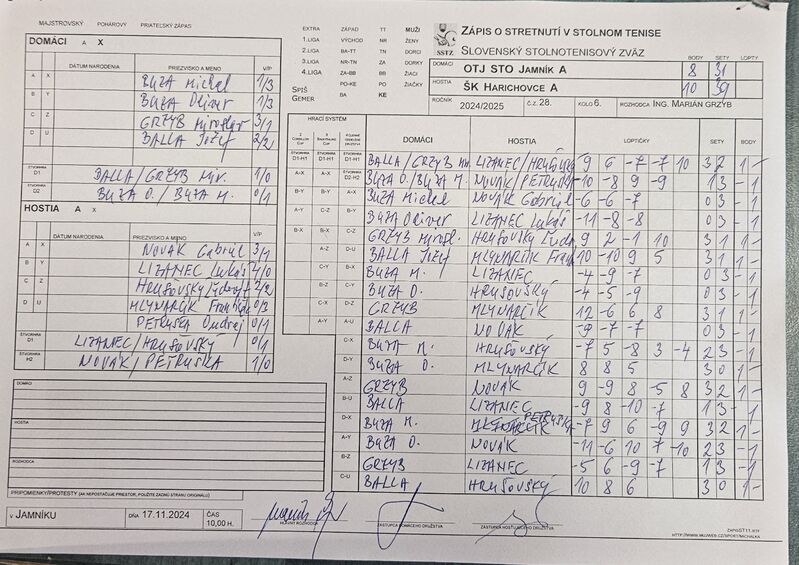 MAJSTROVSKÝ POHÁROVÝ PRIATEĽSKÝ ZÁPAS
DOMÁCI A X
DÁTUM NARODENIA PRIEZVISKO A MENO V/P
A X BUZA Michel 1/3
B Y BUZA Oliver 1/3
C Z GRZYB Miroslav 3/1
D U BALLA Jozef 2/2
ŠTVORHRA D1 BALLA/GRZYB Mir. 1/0
ŠTVORHRA D2 BUZA O./BUZA M. 0/1
HOSTIA A X
DÁTUM NARODENIA PRIEZVISKO A MENO V/P
A X NOVÁK Gabriel 3/1
B Y LIZANEC Lukáš 4/0
C Z HRUŠOVSKÝ Ľudovít 2/2
D U MLYNARČÍK František 0/3
PETRUŠKA Ondrej 0/1
ŠTVORHRA D1 LIZANEC/HRUŠOVSKÝ 0/1
ŠTVORHRA H2 NOVÁK/PETRUŠKA 1/0
DOMÁCI
HOSTIA
ROZHODCA
PRIPOMIENKY/PROTESTY (AK NEPOSTAČUJE PRIESTOR, POUŽITE ZADNÚ STRANU ORIGINÁLU)
V JAMNÍKU DŇA 17.11.2024 ČAS 10,00 H.
EXTRA ZÁPAD TT MUŽI
1.LIGA VÝCHOD NR ŽENY
2.LIGA BA-TT TN DORCI
3.LIGA NR-TN ZA DORKY
4.LIGA ZA-BB BB ŽIACI
PO-KE PO ŽIAČKY
BA KE
SPIŠ
GEMER
SSTZ
ZÁPIS O STRETNUTÍ V STOLNOM TENISE
SLOVENSKÝ STOLNOTENISOVÝ ZVÄZ
BODY SETY LOPTY
DOMÁCI OTJ STO JAMNÍK A 8 31
HOSTIA ŠK HARICHOVCE A 10 39
ROČNÍK 2024/2025 Č.Z. 28. KOLO 6. ROZHODCA ING. MARIÁN GRZYB
HRACÍ SYSTÉM
DOMÁCI HOSTIA LOPTIČKY SETY BODY
D1-H1 D1-H1 D1-H1 BALLA/GRZYB Mir. LIZANEC/HRUŠOVSKÝ 9 6 -7 -7 10 3 2 1 -
A-X A-X D2-H2 BUZA O./BUZA M. NOVÁK/PETRUŠKA -10 -8 9 -9 1 3 - 1
B-Y B-Y A-X BUZA Michel NOVÁK Gabriel -6 -6 -7 0 3 - 1
A-Y C-Z B-Y BUZA Oliver LIZANEC Lukáš -11 -8 -8 0 3 - 1
B-X B-X C-Z GRZYB Mirosl. HRUŠOVSKÝ Ľudo 9 2 -1 10 3 1 1 -
A-Z D-U BALLA Jozef MLYNARČÍK Fran 10 -10 9 5 3 1 1 -
C-Y B-X BUZA M. LIZANEC -4 -9 -7 0 3 - 1
B-Z C-Y BUZA O. HRUŠOVSKÝ -4 -5 -9 0 3 - 1
C-X D-Z GRZYB MLYNARČÍK 12 -6 6 8 3 1 1 -
A-Y A-U BALLA NOVÁK -9 -7 -7 0 3 - 1
C-X BUZA M. HRUŠOVSKÝ -7 5 -8 3 -4 2 3 - 1
D-Y BUZA O. MLYNARČÍK 8 8 5 3 0 1 -
A-Z GRZYB NOVÁK 9 -9 8 -5 8 3 2 1 -
B-U BALLA LIZANEC -9 8 -10 -7 1 3 - 1
D-X BUZA M. PETRUŠKA -7 9 6 -9 9 3 2 1 -
A-Y BUZA O. NOVÁK -11 -6 10 7 -10 2 3 - 1
B-Z GRZYB LIZANEC -5 6 -9 -7 1 3 - 1
C-U BALLA HRUŠOVSKÝ 10 8 6 3 0 1 -
HLAVNÝ ROZHODCA ZÁSTUPCA DOMÁCEHO DRUŽSTVA ZÁSTUPCA HOSŤUJÚCEHO DRUŽSTVA
ZAPISST11.RTF
HTTP://WWW.MUJWEB.CZ/SPORT/MICHALKA